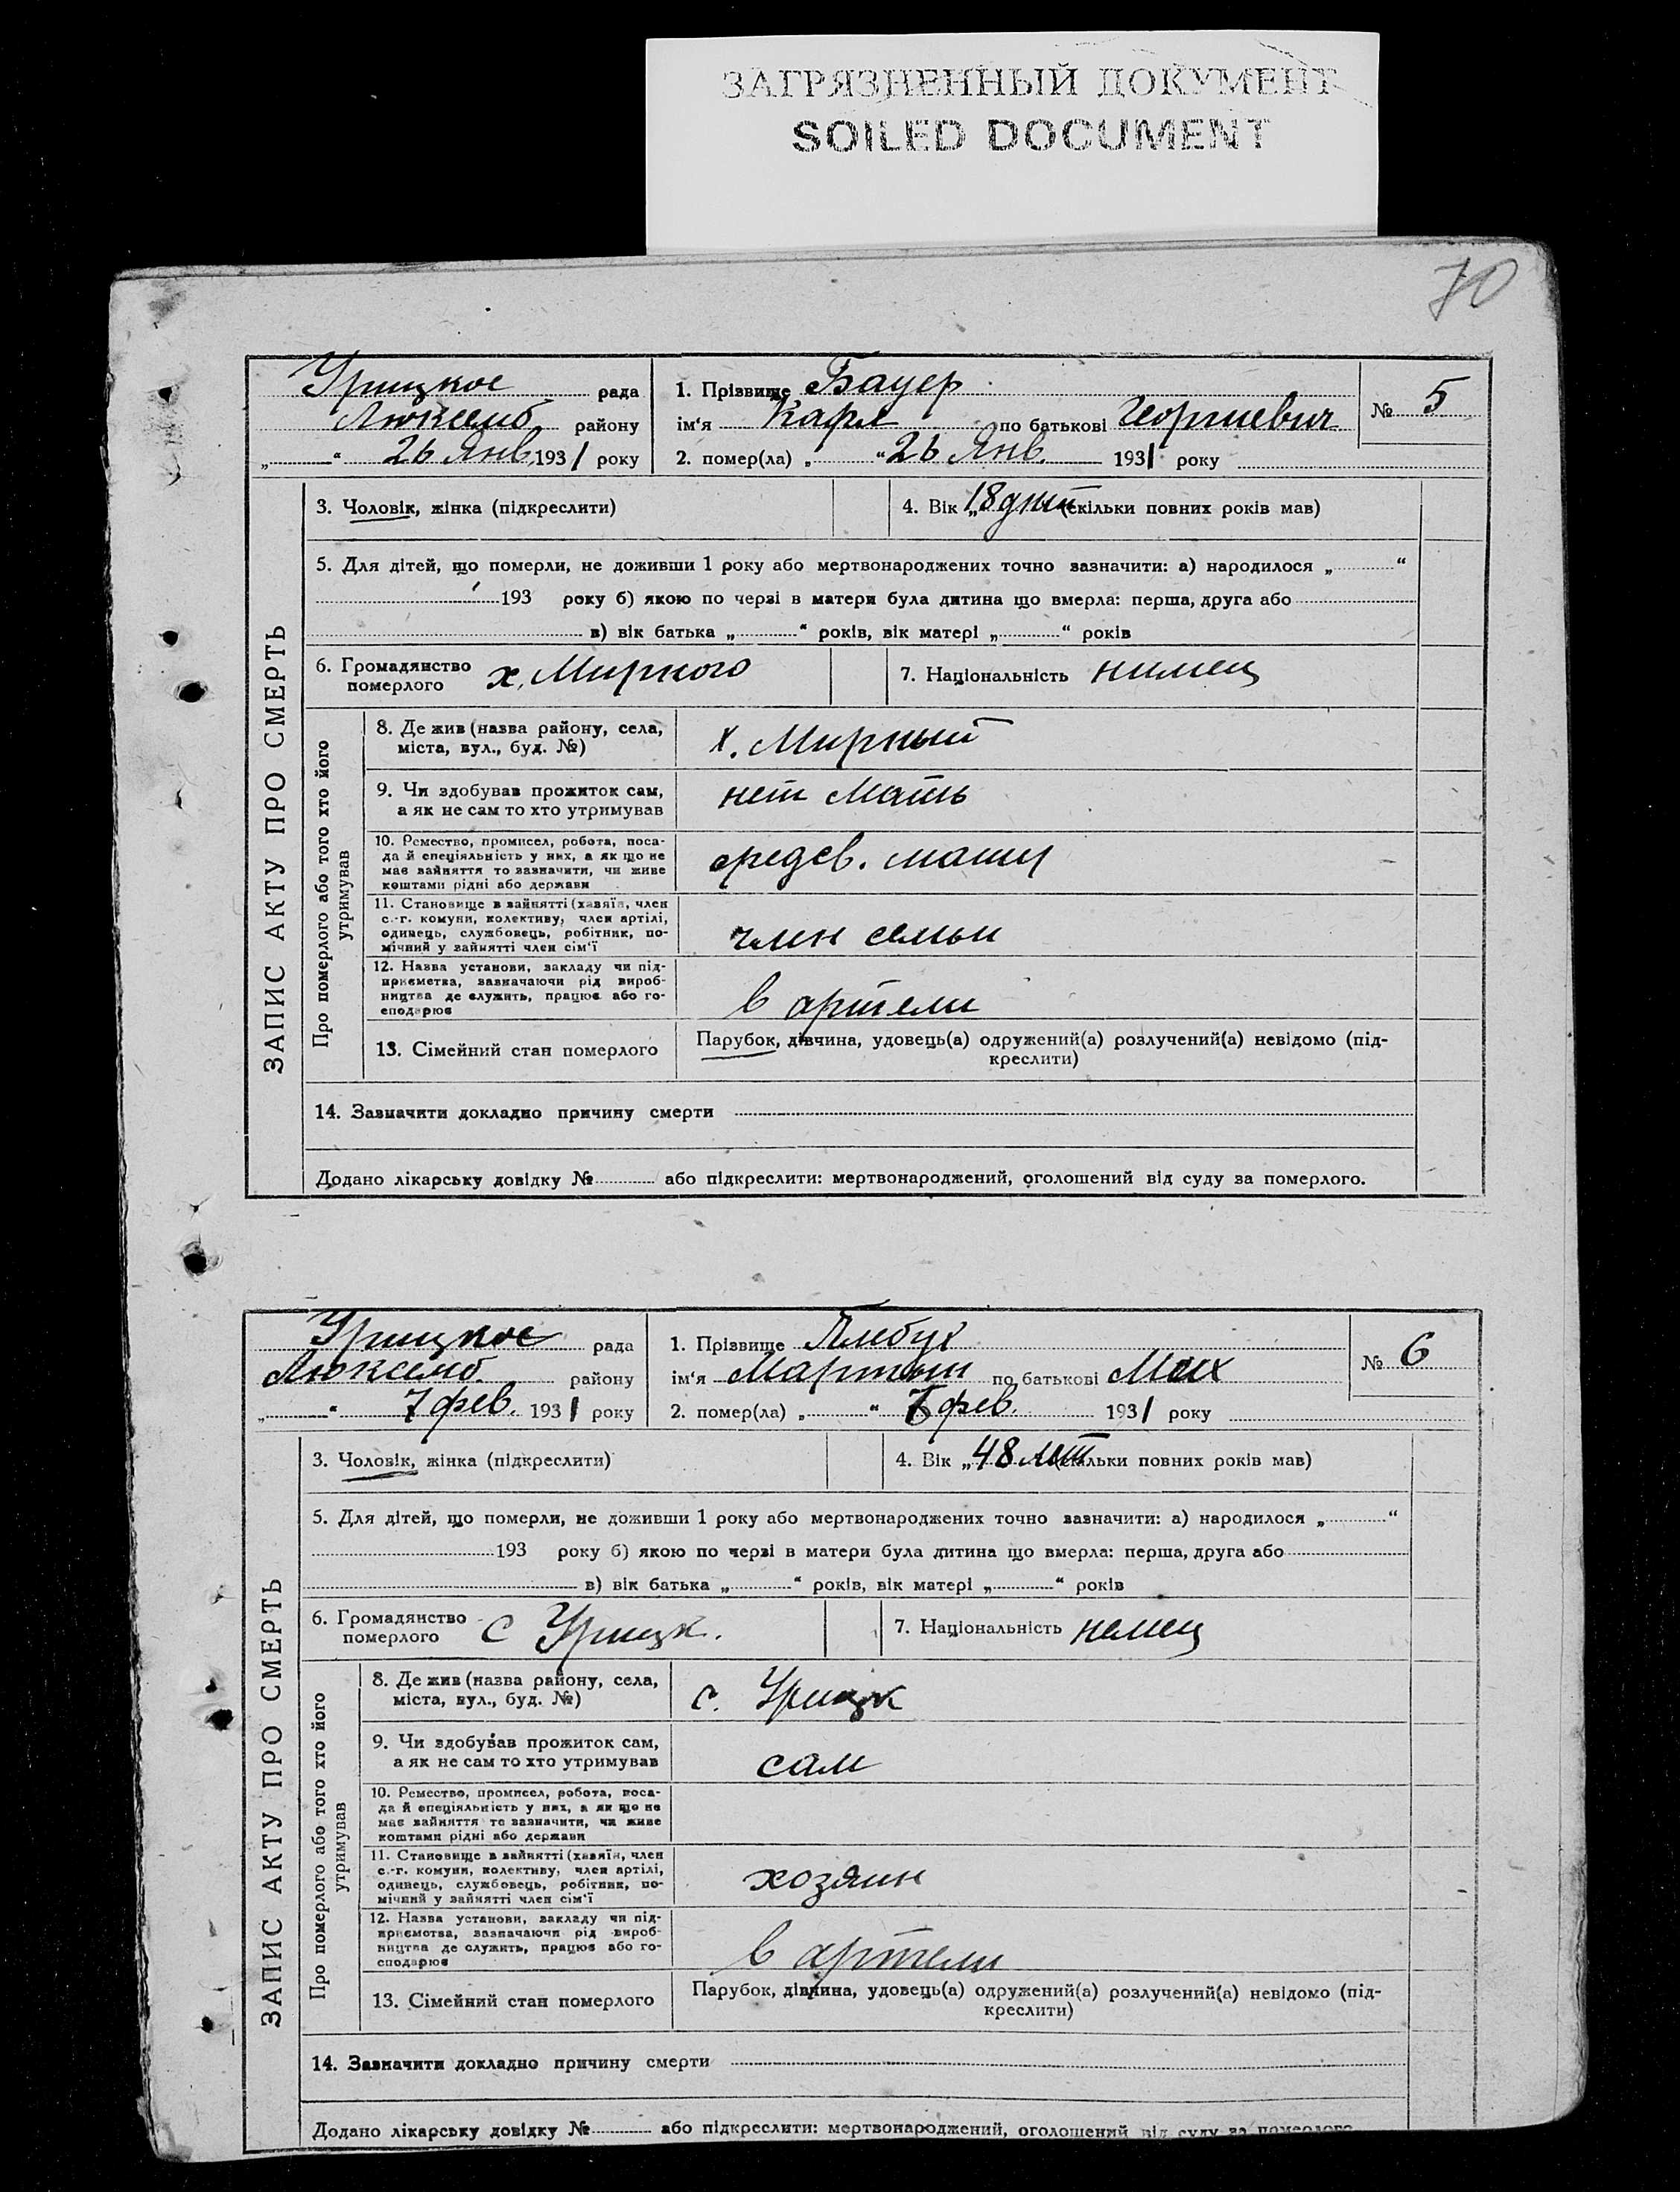 ЗАГРЯЗНЕННЫЙ ДОКУМЕНТ
SOILED DOCUMENT
70
Урицкое рада
Люксемб. району
„ “ 26 Янв. 1931 року
1. Прізвище Бауер
ім‘я Карл по батькові Георгиевич
2. помер(ла) „ “ 26 Янв. 1931 року
№ 5
ЗАПИС АКТУ ПРО СМЕРТЬ
3. Чоловік, жінка (підкреслити)
4. Вік „18 дней (скільки повних років мав)
5. Для дітей, що померли, не доживши 1 року або мертвонароджених точно зазначити: а) народилося „ “
193 року б) якою по черзі в матери була дитина що вмерла: перша, друга або
в) вік батька „ “ років, вік матері „ “ років
6. Громадянство
померлого х. Мирного
7. Національність нимец
Про померлого або того хто його
утримував
8. Де жив (назва району, села,
міста, вул., буд. №) х. Мирный
9. Чи здобував прожиток сам,
а як не сам то хто утримував нет Мать
10. Ремество, промисел, робота, поса-
да й спеціяльність у них, а як що не
має зайняття то зазначити, чи живе
коштами рідні або держави
11. Становище в зайнятті (хазяїн, член
с.-г. комуни, колективу, член артілі,
одинець, службовець, робітник, по-
мічний у зайнятті член сім‘ї член семьи
12. Назва установи, закладу чи під-
приємства, зазначаючи рід вироб-
ництва де служить, працює або го-
сподарює в артели
13. Сімейний стан померлого
Парубок, дівчина, удовець(а) одружений(а) розлучений(а) невідомо (під-
креслити)
14. Зазначити докладно причину смерти
Додано лікарську довідку № або підкреслити: мертвонароджений, оголошений від суду за померлого.
Урицкое рада
Люксемб. району
„ “ 7 фев. 1931 року
1. Прізвище
ім‘я Мартын по батькові Мих
2. помер(ла) „ “ 7 фев. 1931 року
№ 6
ЗАПИС АКТУ ПРО СМЕРТЬ
3. Чоловік, жінка (підкреслити)
4. Вік „48 лет (скільки повних років мав)
5. Для дітей, що померли, не доживши 1 року або мертвонароджених точно зазначити: а) народилося „ “
193 року б) якою по черзі в матери була дитина що вмерла: перша, друга або
в) вік батька „ “ років, вік матері „ “ років
6. Громадянство
померлого с Урицк.
7. Національність немец
Про померлого або того хто його
утримував
8. Де жив (назва району, села,
міста, вул., буд. №) с. Урицк
9. Чи здобував прожиток сам,
а як не сам то хто утримував сам
10. Ремество, промисел, робота, поса-
да й спеціяльність у них, а як що не
має зайняття то зазначити, чи живе
коштами рідні або держави
11. Становище в зайнятті (хазяїн, член
с.-г. комуни, колективу, член артілі,
одинець, службовець, робітник, по-
мічний у зайнятті член сім‘ї хозяин
12. Назва установи, закладу чи під-
приємства, зазначаючи рід вироб-
ництва де служить, працює або го-
сподарює в артели
13. Сімейний стан померлого
Парубок, дівчина, удовець(а) одружений(а) розлучений(а) невідомо (під-
креслити)
14. Зазначити докладно причину смерти
Додано лікарську довідку № або підкреслити: мертвонароджений, оголошений від суду за померлого